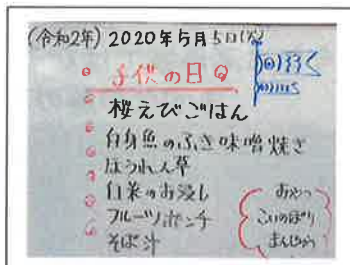 (令和2年) 2020年5月5日(火)
子供の日
桜えびごはん
白身魚のふき味噌焼き
ほうれん草
白菜のお浸し
フルーツポンチ
そば汁
おやつ
こいのぼり
まんじゅう